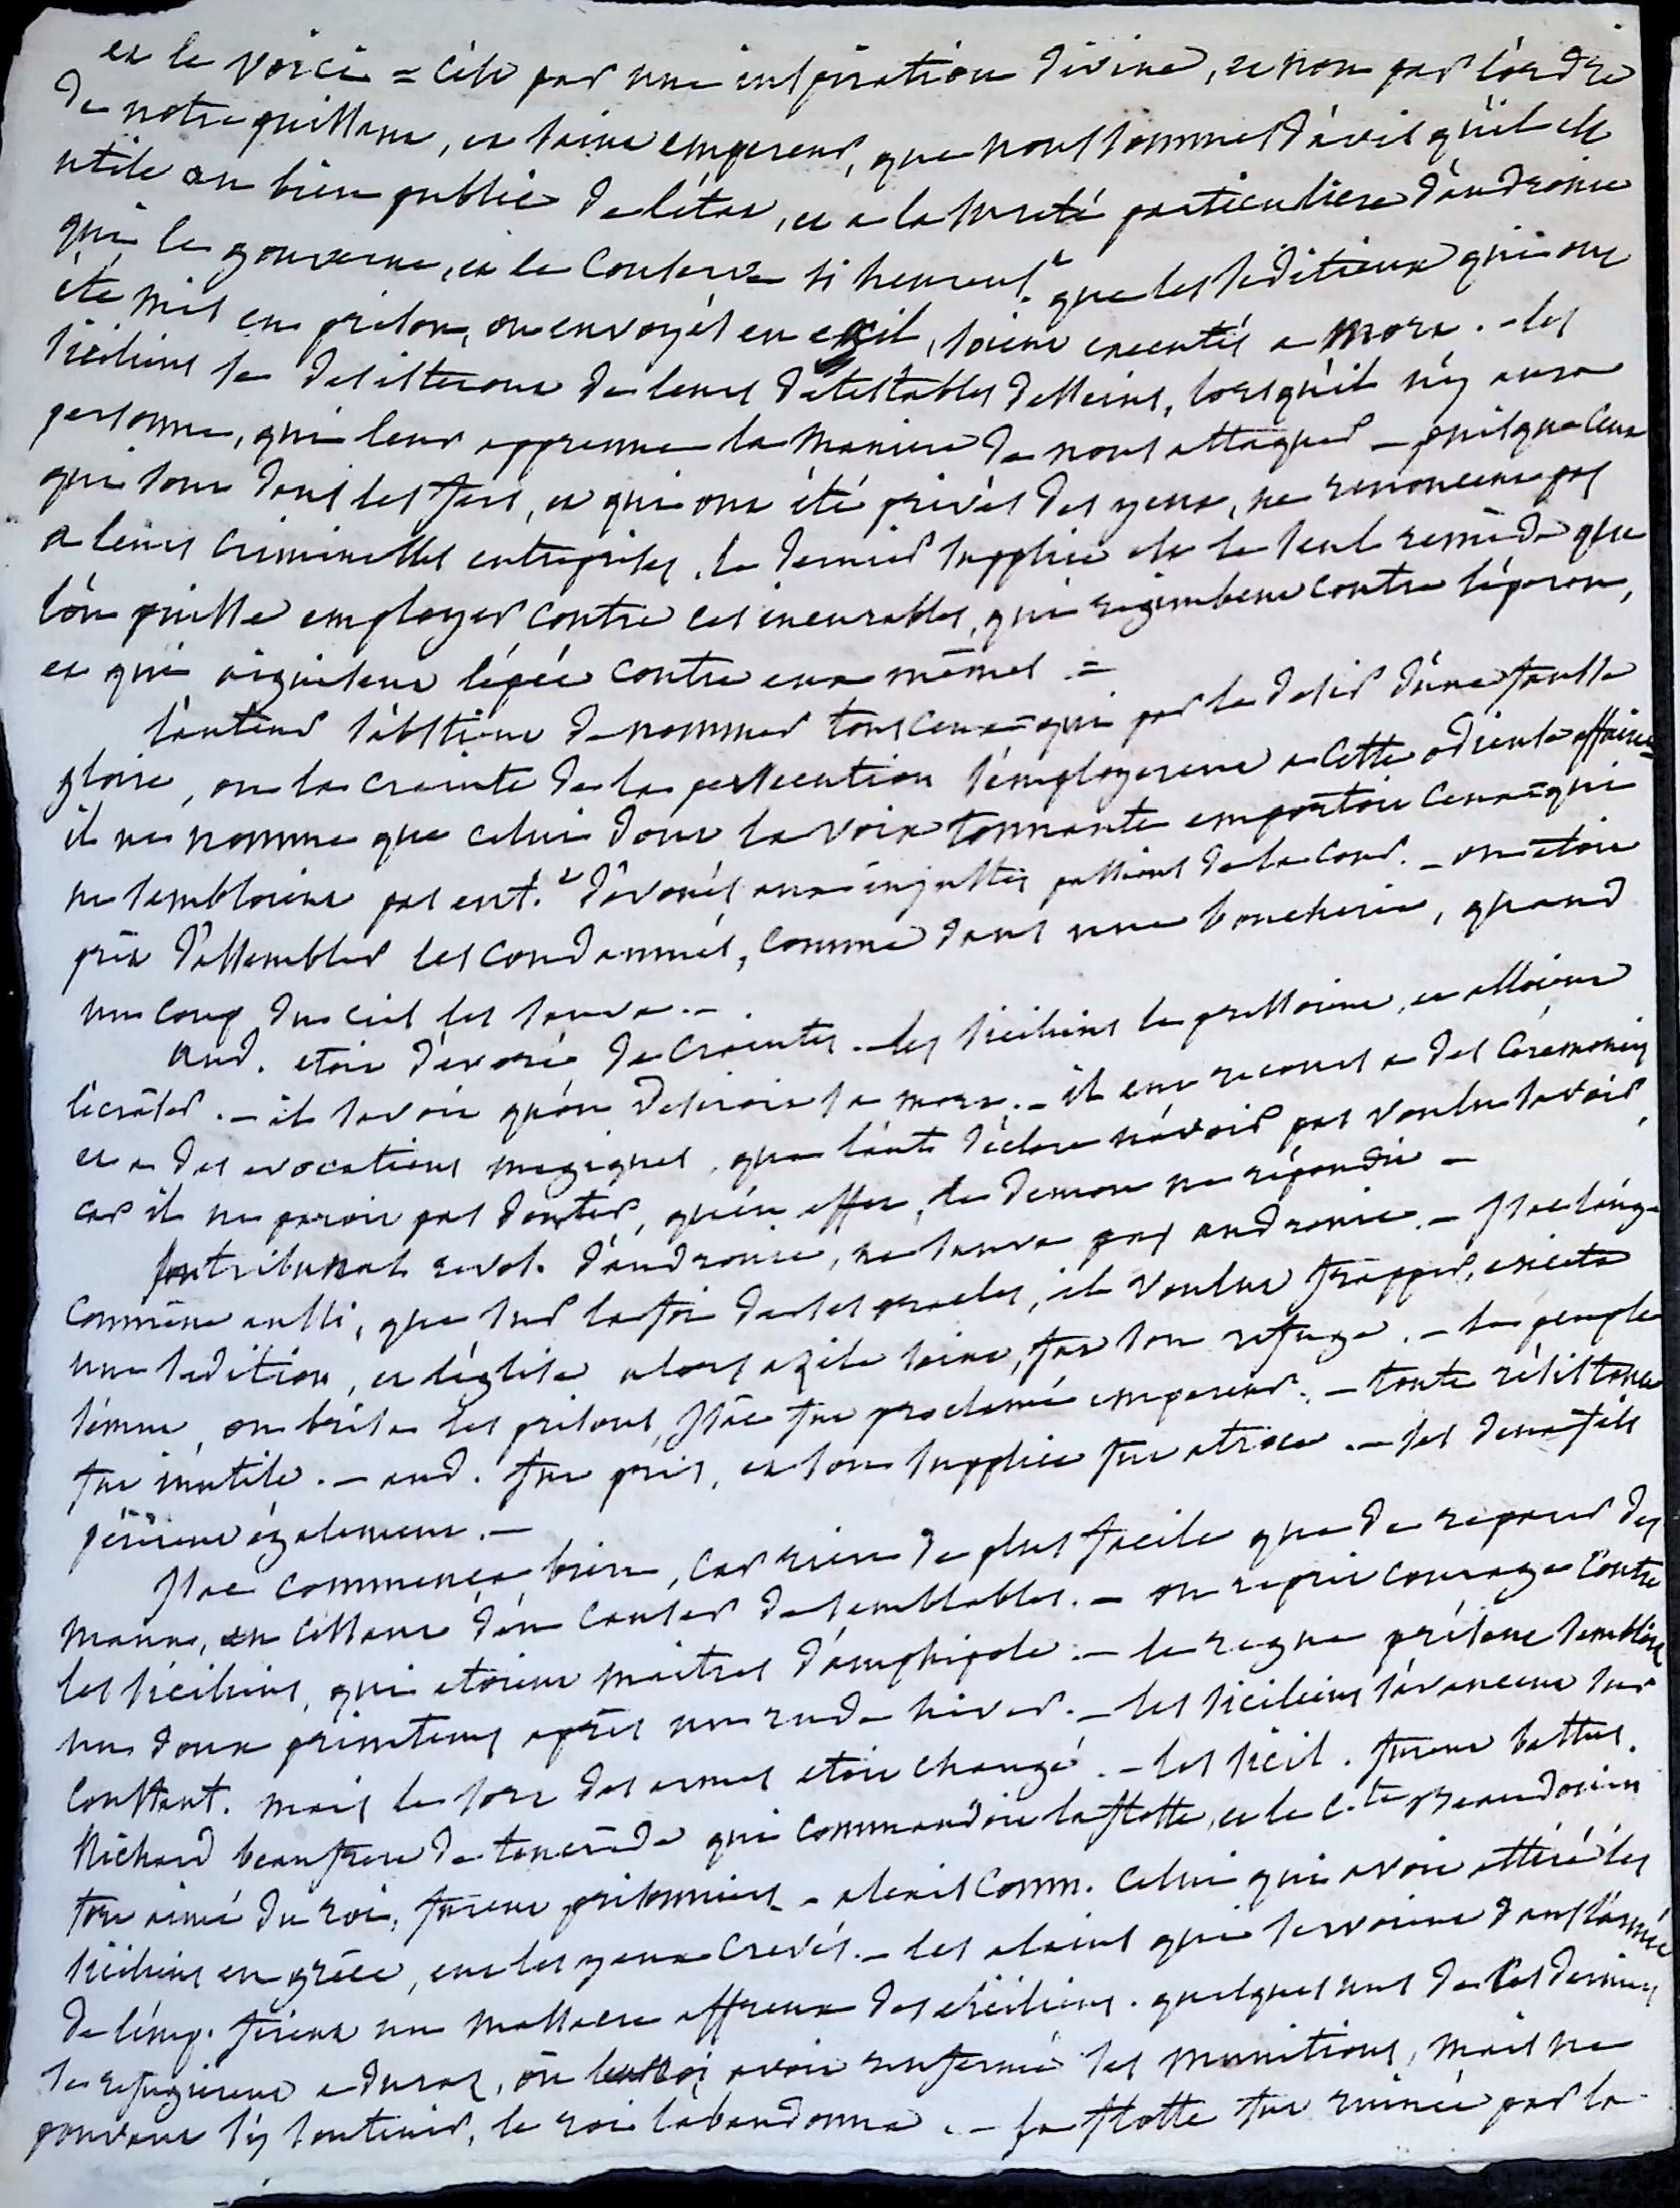 et le voici = c'est par une inspiration divine, et non par l'ordre
de notre puissant, et saint empereur, que nous sommes d'avis qu'il est
utile au bien public de l'état, et a la sureté particuliere d'andronic
qui le gouverne, et le conserve si heureus.t que les séditieux qui ont
été mis en prison, ou envoyés en exil, soient executés a mort. - les
siciliens se desisteront de leurs détestables desseins, lorsqu'il n'y aura
personne, qui leur apprenne la maniere de nous attaquer - puisque ceux
qui sont dans les fers, et qui ont été privés des yeux, ne renoncent pas
a leurs criminelles entreprises, le dernier supplice est le seul remède que
l'on puisse employer contre ces incurables, qui regimbent contre l'éperon,
et qui aiguisent l'épée contre eux mêmes =
l'auteur s'abstient de nommer tous ceux = qui par le desir d'une fausse
gloire, ou la crainte de la persecution s'employerent a cette odieuse affaire =
il ne nomme que celui dont la voix tonnante emportoit ceux = qui
ne sembloient pas ent.t dévoués aux injustes passions de la cour. - on etoit
prêt d'assembler les condamnés, comme dans une boucherie, quand
un coup du ciel les sauva. -
And. etoit dévoré de craintes. - les siciliens le pressoient, et alloient
l'écraser. - il savoit qu'on desiroit sa mort. - il eut recours a des cérémonies
et a des evocations magiques, que l'aut. déclare n'avoir pas voulu savoir,
car il ne paroit pas douter, qu'en effet, le demon ne répondit -
son tribunal revol. d'andronic, ne sauva pas andronic. - Isac l'ange
comnène aussi, que sur la foi de ses oracles, il voulut frapper, excita
une sedition, et l'église alors azile saint, fut son refuge. - le peuple
s'émut, on brisa les prisons, Isâc fut proclamé empereur. - toute résistance
fut inutile. - and. fut pris, et son supplice fut atroce. - ses deux fils
périrent également. -
Isac commença bien, car rien de plus facile que de reparer des
maux, en cessant d'en causer de semblables. - on reprit courage contre
les siciliens, qui etoient maitres d'amphipole. - le regne présent sembloit
un doux printems après un rude hiver. - les siciliens s'avancent sur
Constant. mais le sort des armes etoit changé. - les sicil. furent battus.
Richard beaufrere de tancrède qui commandoit la flotte, et le c.te Beaudouin
fort aimé du roi, furent prisonniers - alexis Comn. celui qui avoit attiré les
siciliens en grèce, eut les yeux crevés. - les alains qui servoient dans l'armée
de l'emp. firent un massacre affreux des siciliens. quelques uns de ces derniers
se refugierent a duras, où le roi avoit renfermé ses munitions, mais ne
pouvant s'y soutenir, le roi l'abandonna. - sa flotte fut ruinée par la